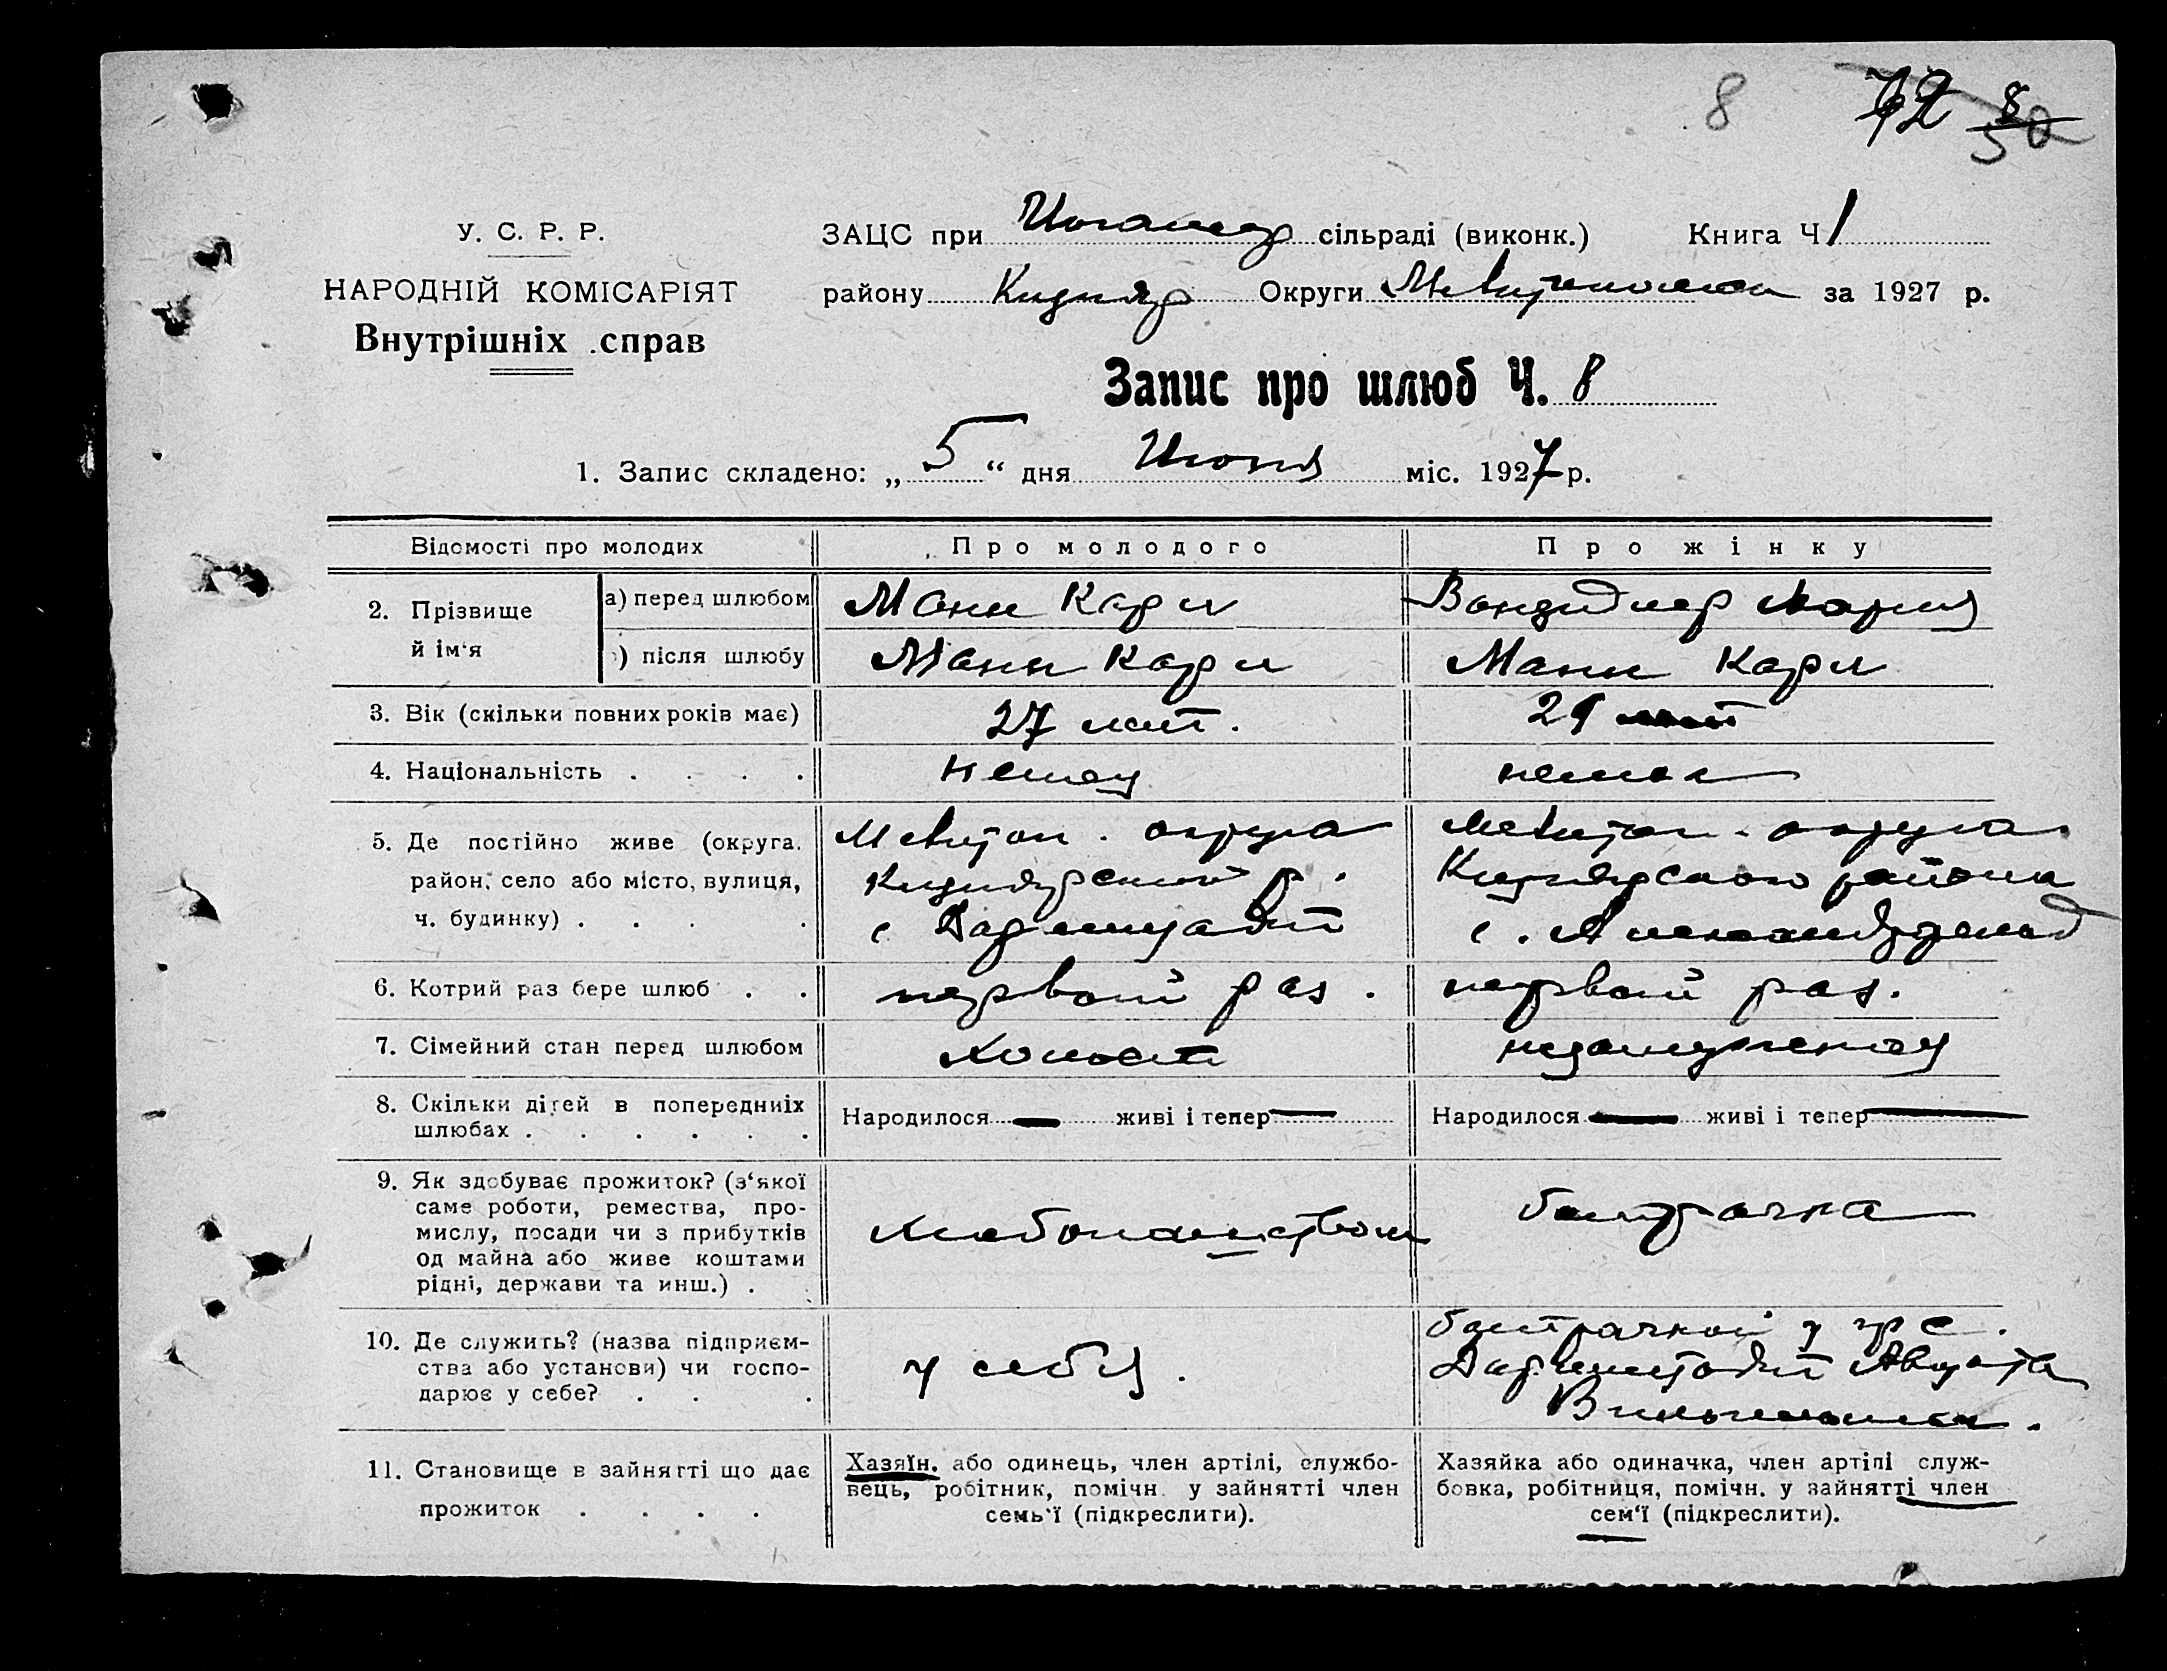 8 72 8
50
У. С. Р. Р.
НАРОДНІЙ КОМІСАРІЯТ
Внутрішніх справ
ЗАЦС при сільраді (виконк.) Книга Ч 1
району Кизияр Округи за 1927 р.
Запис про шлюб Ч. 8
1. Запис складено: „ 5 “ дня Июня міс. 1927 р.
Відомості про молодих Про молодого Про жінку
2. Прізвище й ім‘я
а) перед шлюбом Манн Карл Мария
) після шлюбу Манн Карл Манн Карл
3. Вік (скільки повних років має) 27 лет. 21
4. Національність . . . . немец немка
5. Де постійно живе (округа, Мелитоп. округа Мелитоп. округа
район, село або місто, вулиця, Кизиярский р. Кизиярского района
ч. будинку) . . . . с Дармштадт с. Александрфельд
6. Котрий раз бере шлюб . . первой раз. первой раз.
7. Сімейний стан перед шлюбом холост незамужняя
8. Скільки дітей в попередниіх шлюбах . . . . . .
Народилося — живі і тепер —
Народилося — живі і тепер —
9. Як здобуває прожиток? (з‘якої
саме роботи, ремества, про-
мислу, посади чи з прибутків
од майна або живе коштами
рідні, держави та инш.) . .
хлебопашеством
батрачка
10. Де служить? (назва підприєм-
ства або установи) чи госпо-
дарює у себе? . . .
у себя.
батрачкой у гр с.
Дармштадт Августа
11. Становище в зайнятті що дає
прожиток . . . .
Хазяїн, або одинець, член артілі, службо-
вець, робітник, помічн. у зайнятті член
семь‘ї (підкреслити).
Хазяйка або одиначка, член артілі служ-
бовка, робітниця, помічн. у зайнятті член
сем‘ї (підкреслити).